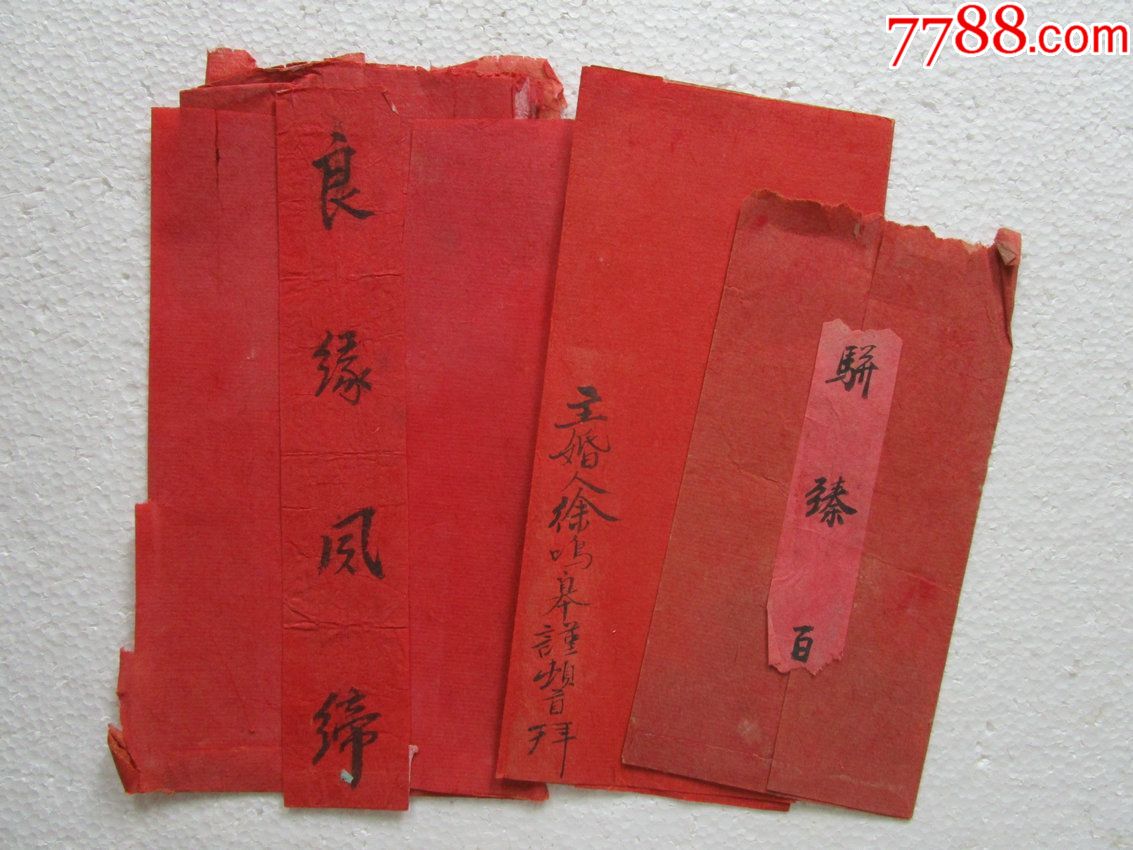 7788.com
良缘风缔
主婚人徐鳴皋謹頓首拜
駢臻百